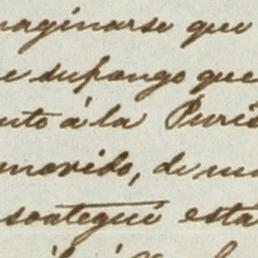 maginarse que
e supongo que
uto á la Puris
movido, de ma
soategui esta